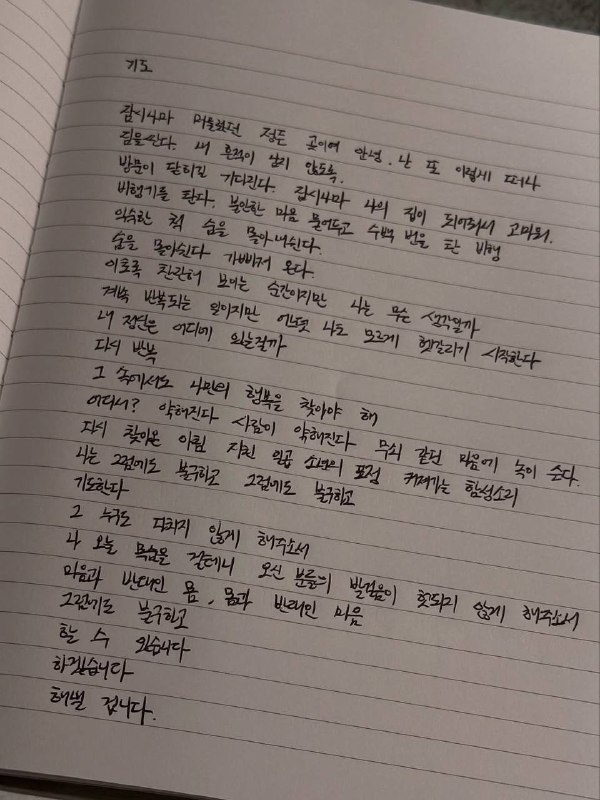 기도
잠시나마 머물렀던 정든 곳이여 안녕. 난 또 이렇게 떠나
짐을싼다. 내 흔적이 남지 않도록.
방문이 닫히길 기다린다. 잠시나마 나의 집이 되어줘서 고마워.
비행기를 탄다. 불안한 마음 묻어두고 수백 번을 탄 비행
익숙한 척 숨을 몰아내쉰다.
숨을 몰아쉰다 가빠져 온다.
이토록 찬란히 보이는 순간이지만 나는 무슨 생각일까
계속 반복되는 일이지만 어느덧 나도 모르게 헷갈리기 시작한다
내 정신은 어디에 와있는걸까
다시 반복
그 속에서도 나만의 행복을 찾아야 해
어디서? 약해진다 사람이 약해진다 무쇠 같던 마음에 녹이 슨다.
다시 찾아온 아침 지친 일곱 소년의 표정 커져가는 함성소리
나는 그럼에도 불구하고 그럼에도 불구하고
기도한다
그 누구도 다치지 않게 해주소서
나 오늘 목숨을 걸테니 오신 분들의 발걸음이 헛되지 않게 해주소서
마음과 반대인 몸, 몸과 반대인 마음
그럼에도 불구하고
할 수 있습니다
하겠습니다
해낼 겁니다.